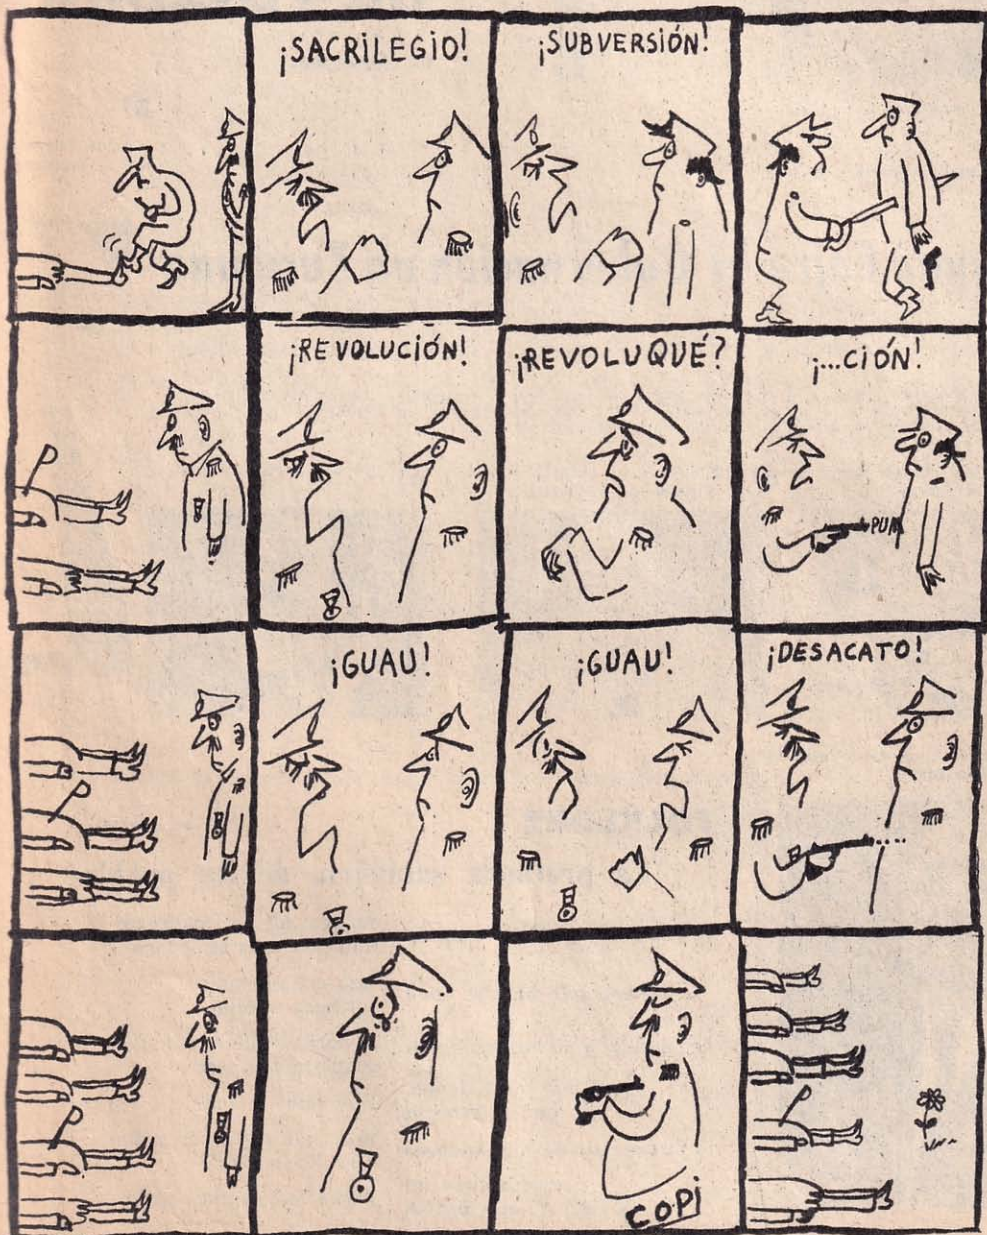 ¡SACRILEGIO!
¡SUBVERSIÓN!
¡REVOLUCIÓN!
¡REVOLUQUÉ?
¡...CIÓN!
PUM
¡GUAU!
¡GUAU!
¡DESACATO!
COPi